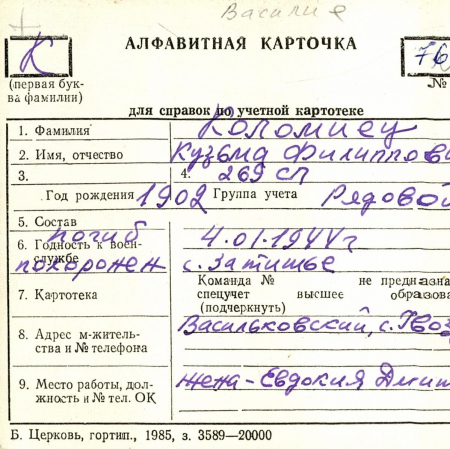 Василие
К
АЛФАВИТНАЯ КАРТОЧКА
76
(первая бук-
ва фамилии)
№
для справок по учетной картотеке
1. Фамилия Коломиец
2. Имя, отчество Кузьма Филиппови
3. 4. 269 сп
Год рождения 1902 Группа учета Рядовой
5. Состав
погиб 4.01.1944г
6. Годность к воен-
службе
похоронен с. Затишье
7. Картотека
Команда № не предназна
спецучет высшее образова
(подчеркнуть)
8. Адрес м-житель-
ства и № телефона
Васильковский, с. Гвоз
9. Место работы, дол-
жность и № тел. ОК
жена - Евдокия Дмит
Б. Церковь, гортип., 1985, з. 3589—20000